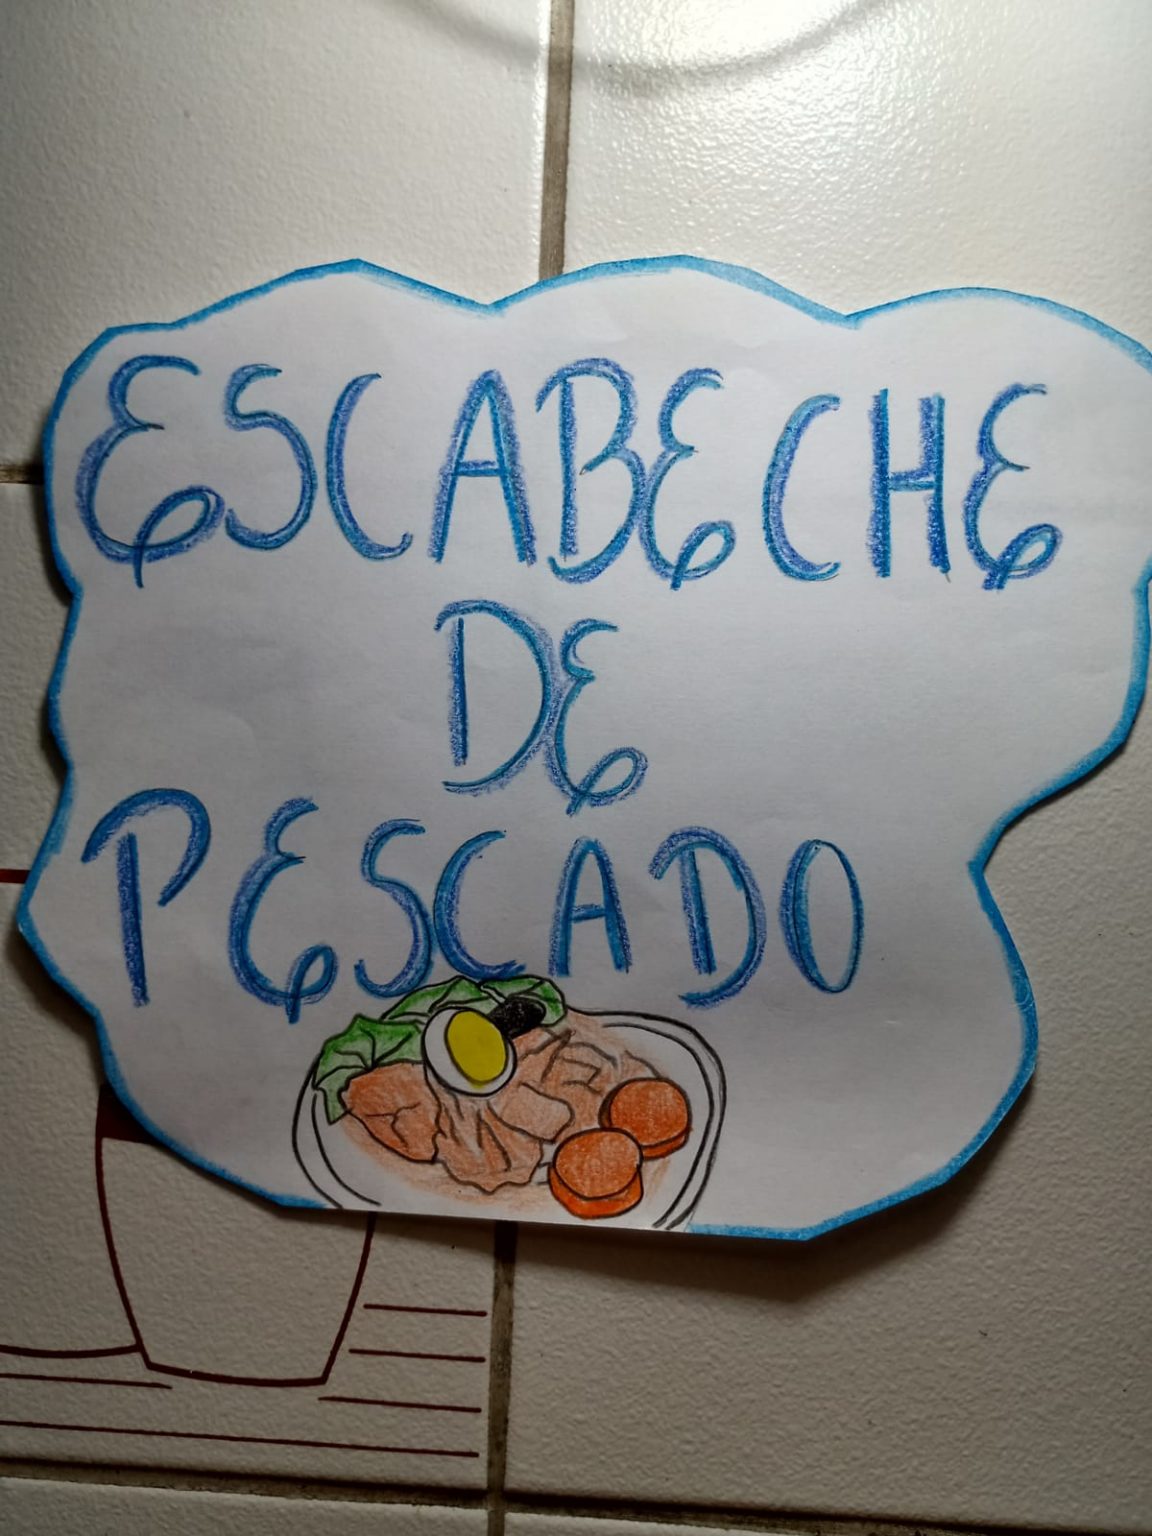 ESCABECHE
DE
PESCADO